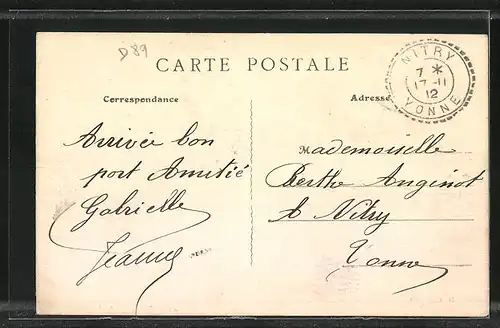 D 89
CARTE POSTALE
NITRY
7 *
17 -11
12
YONNE
Correspondance
Adresse
Arrivée bon
port Amitié
Gabrielle
Jeanne
Mademoiselle
Berthe Anginot
A Nitry
Yonne